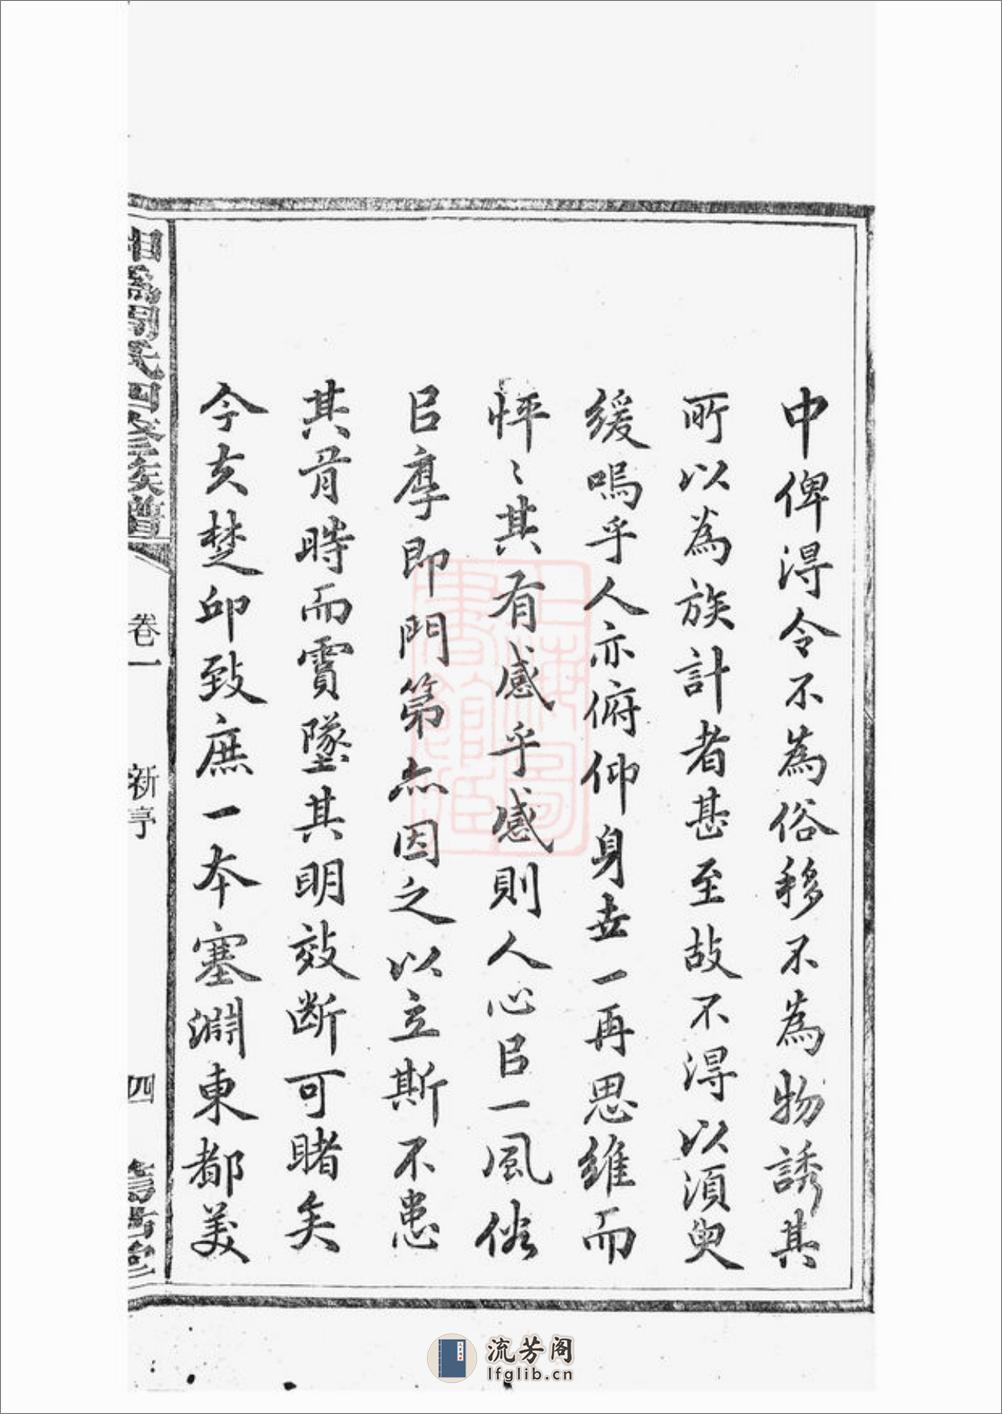 中俾淂令不為俗移不為物誘其
所以為族計者甚至故不淂以須臾
緩嗚乎人亦俯仰身世一再思維而
怦〻其有感乎感則人心㠯一風俗
㠯厚即門第亦因之以立斯不患
其背時而實墜其明效断可睹矣
今玄楚邱致庶一本塞淵東都美
氏四修族譜
卷一
新序
四
流芳阁
lfglib.cn